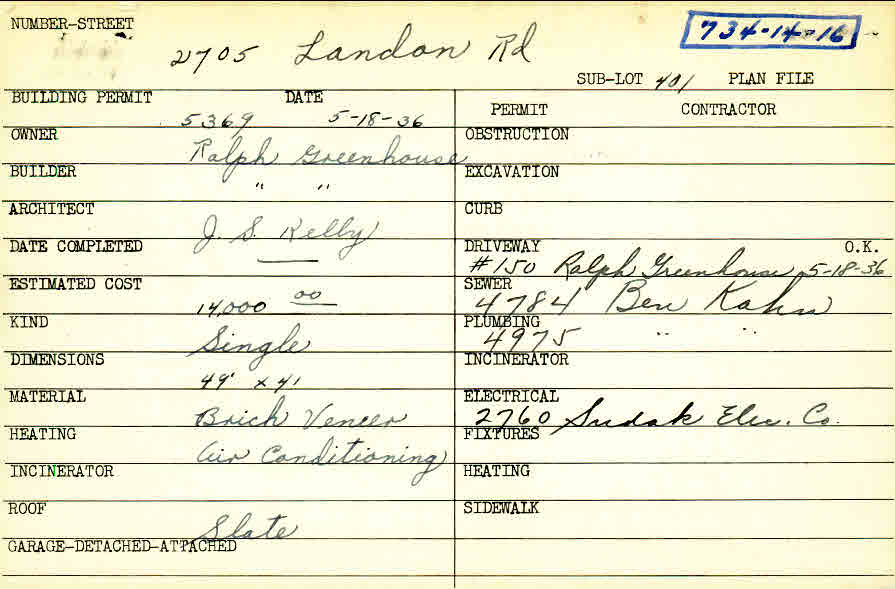 NUMBER-STREET
2705 Landon Rd
734-14-16
SUB-LOT 401 PLAN FILE
BUILDING PERMIT DATE
5369 5-18-36
PERMIT CONTRACTOR
OWNER
Ralph Greenhouse
OBSTRUCTION
BUILDER
" "
EXCAVATION
ARCHITECT
J. S. Kelly
CURB
DATE COMPLETED
—
DRIVEWAY O.K.
#150 Ralph Greenhouse 5-18-36
ESTIMATED COST
14,000 00
SEWER
4784 Ben Kahn
KIND
Single
PLUMBING
4975 " "
DIMENSIONS
49' x 41
INCINERATOR
MATERIAL
Brick Veneer
ELECTRICAL
2760 Sudak Elec. Co.
HEATING
Air Conditioning
FIXTURES
INCINERATOR
HEATING
ROOF
Slate
SIDEWALK
GARAGE-DETACHED-ATTACHED